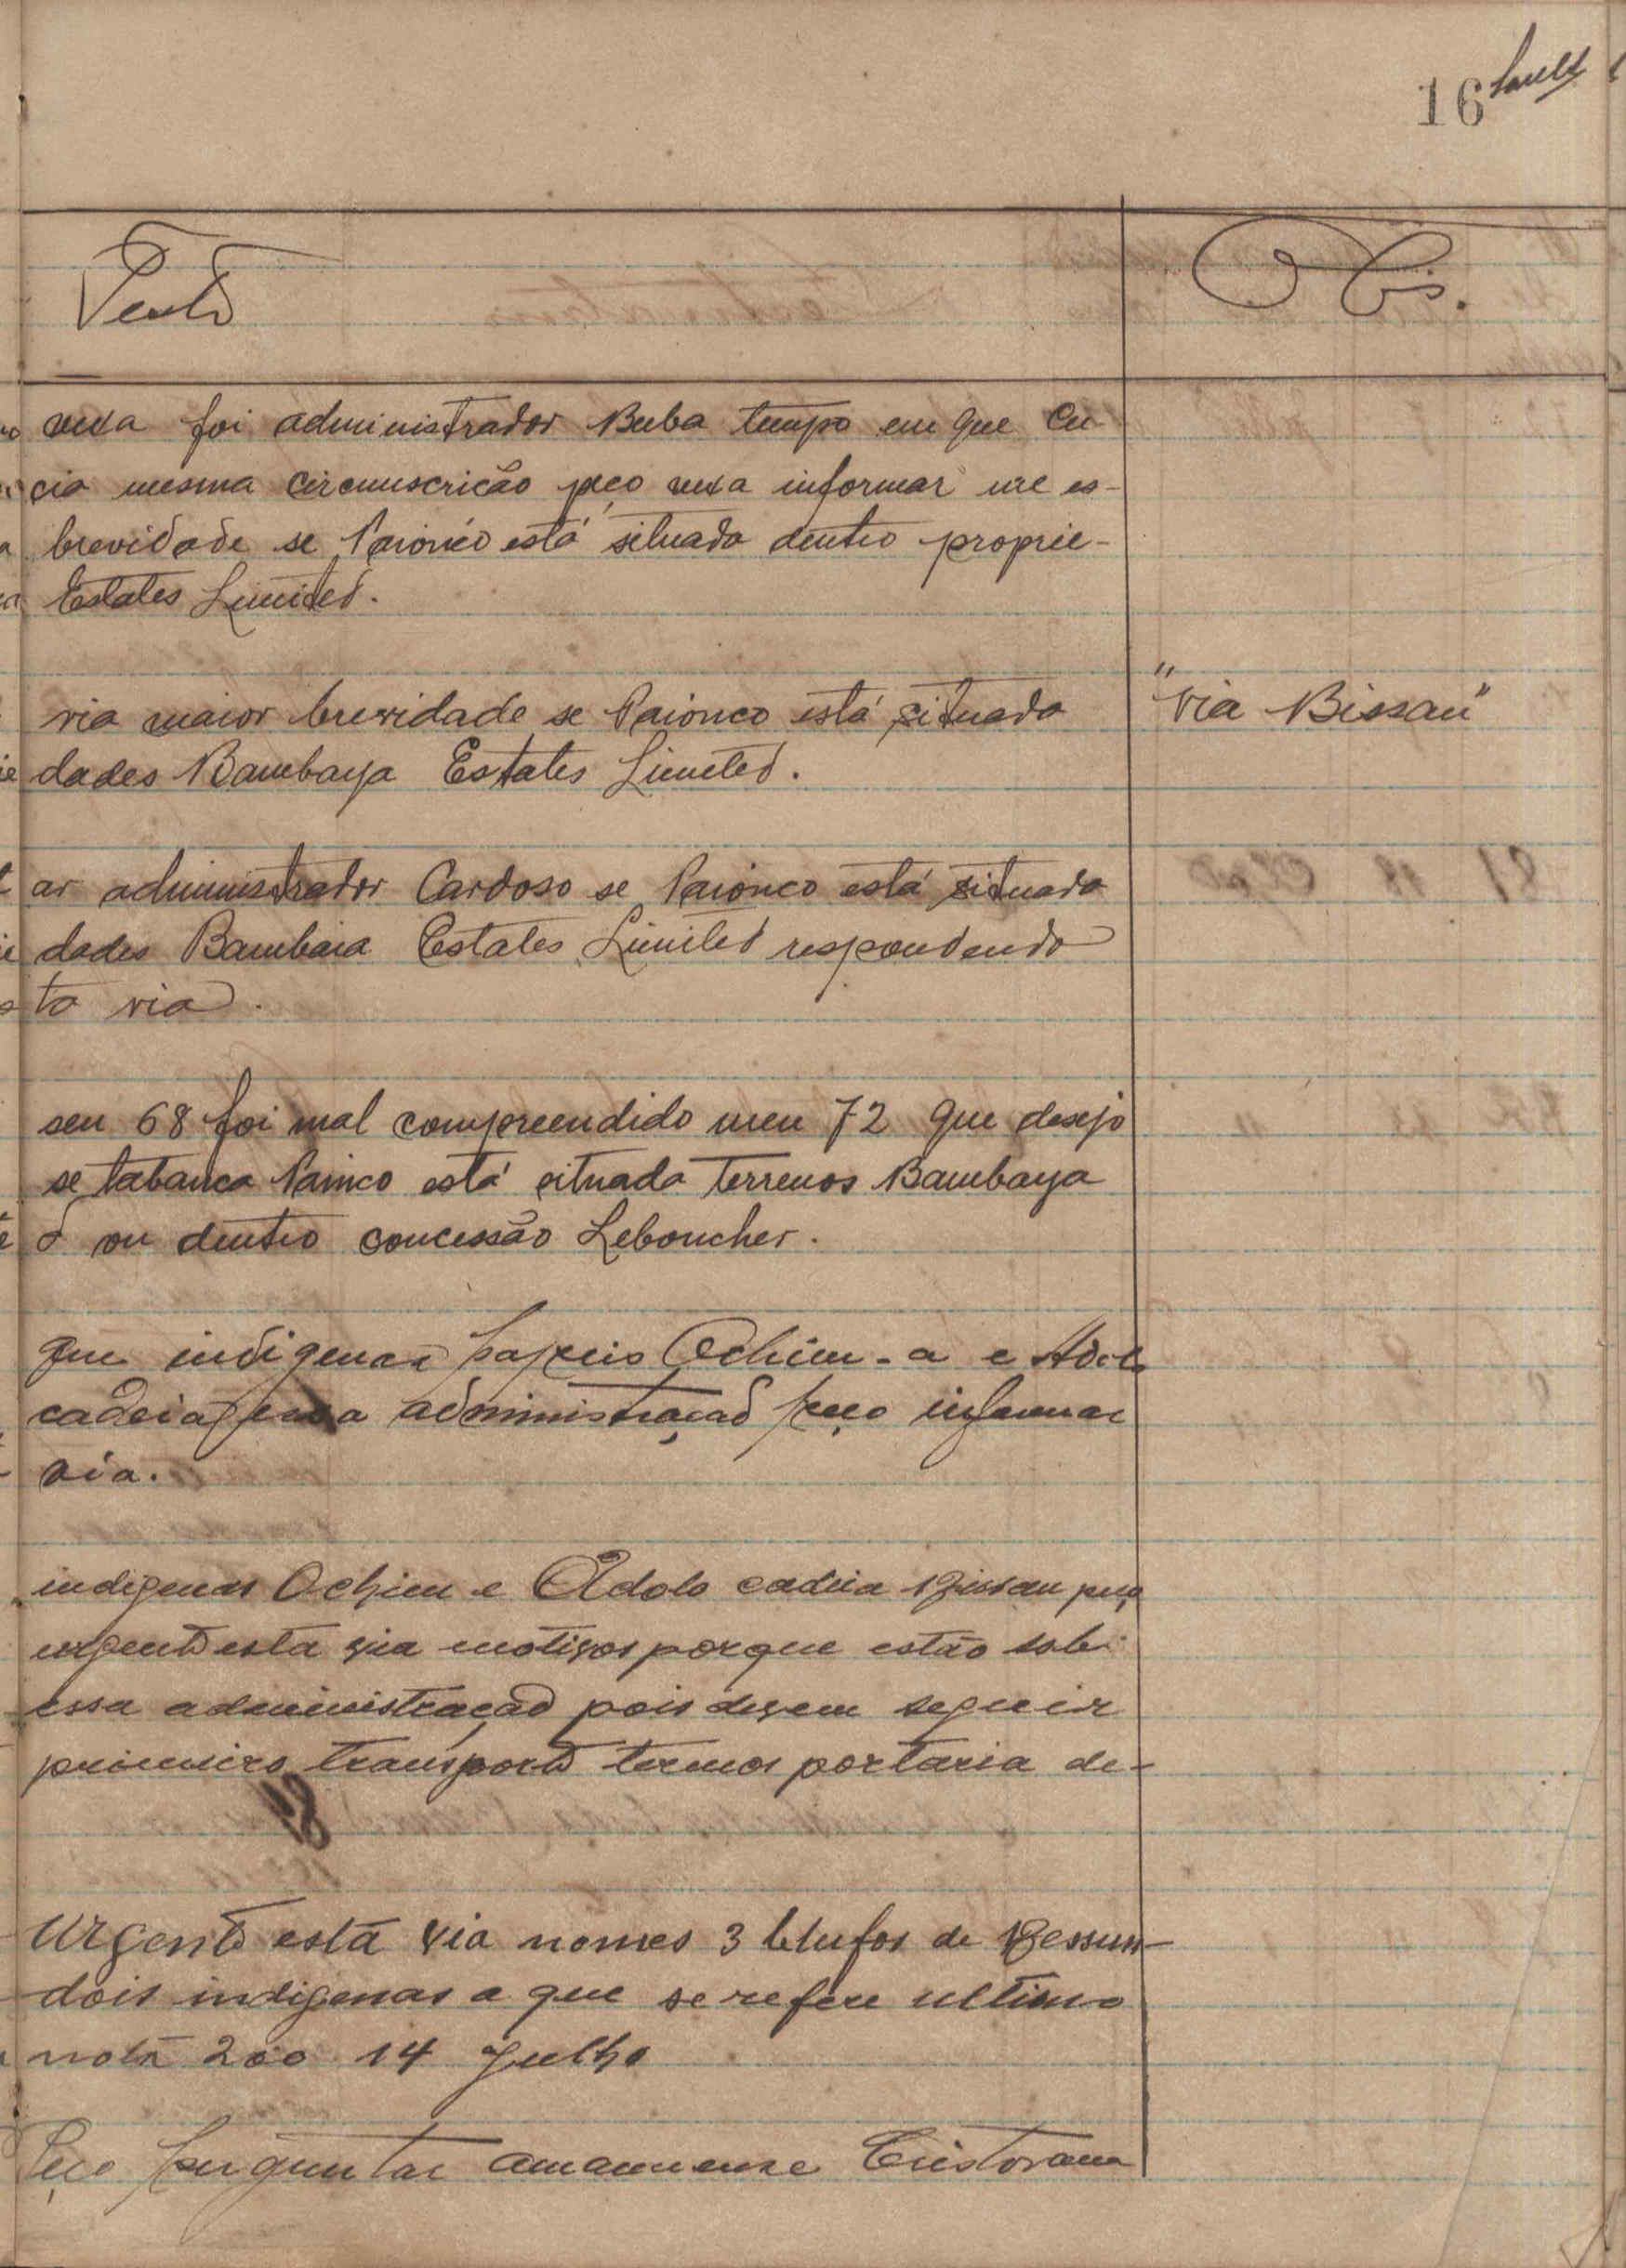 16
Texto
Obs.
vexa foi administrador Buba tempo em que Cu-
cia mesma circunscrição peço vexa informar me es-
brevidade se Paionco está situada dentro proprie-
Estates Limited.
via maior brevidade se Paionco está situada
"via Bissau"
dades Bambaya Estates Limited.
ar administrador Cardoso se Paionco está situada
dades Bambaia Estates Limited respondendo
ta via.
seu 68 foi mal compreendido meu 72 que desejo
se tabanca Painco está situada terrenos Bambaya
d ou dentro concessão Leboucher.
que indigenas papeis Ochim-a e Adolo
cadeia essa administração peço informar
via.
indigenas Ochim e Adolo cadeia Bissau peço
urgente esta via motivos porque estão sob
essa administração pois devem seguir
primeiro transporte termos portaria de-
Urgente esta via nomes 3 de Bessum-
dois indigenas a que se refere ultimo
nota 200 14 Julho
Peço perguntar amanuense Cristovam